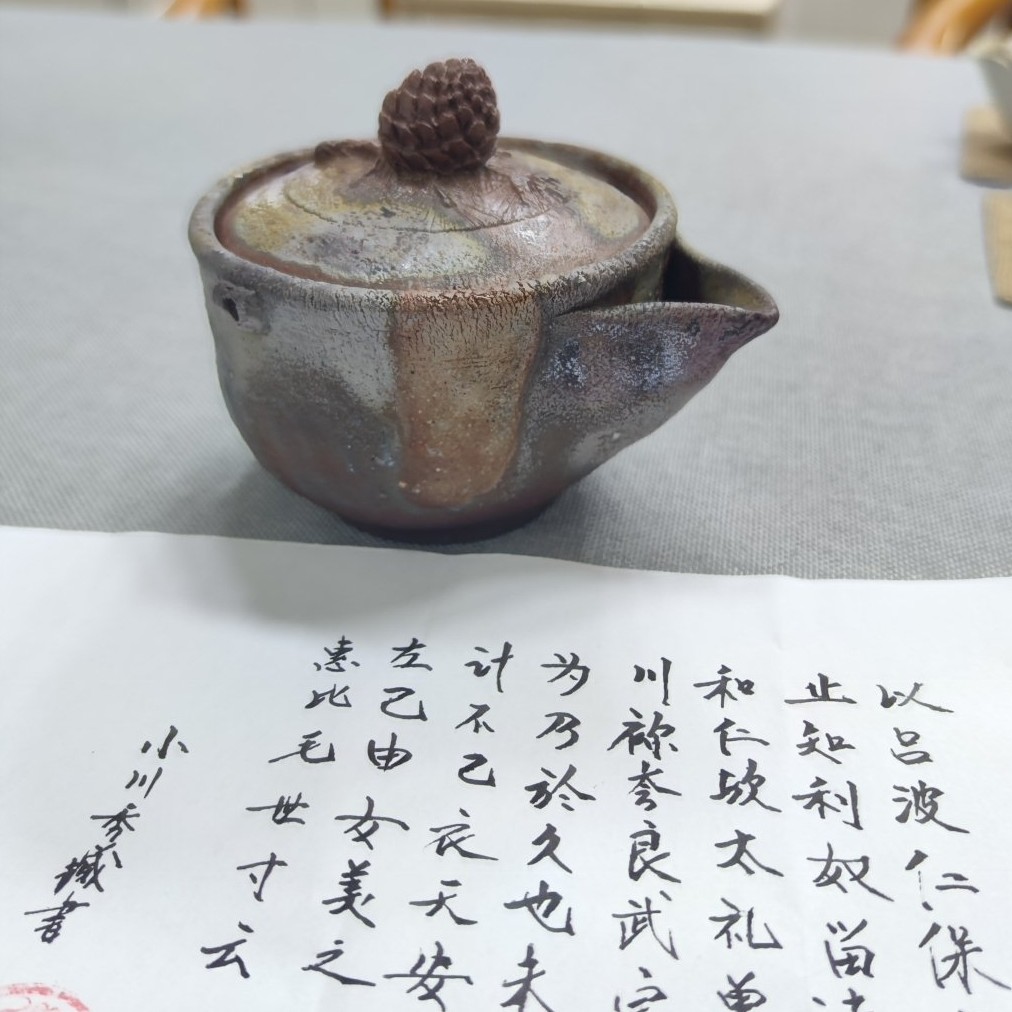 以呂波仁保
止知利奴留
和仁欤太礼曽
川祢奈良武
為乃於久也末
計不己衣天安
左己由女美之
恵比毛世寸云
小川秀書